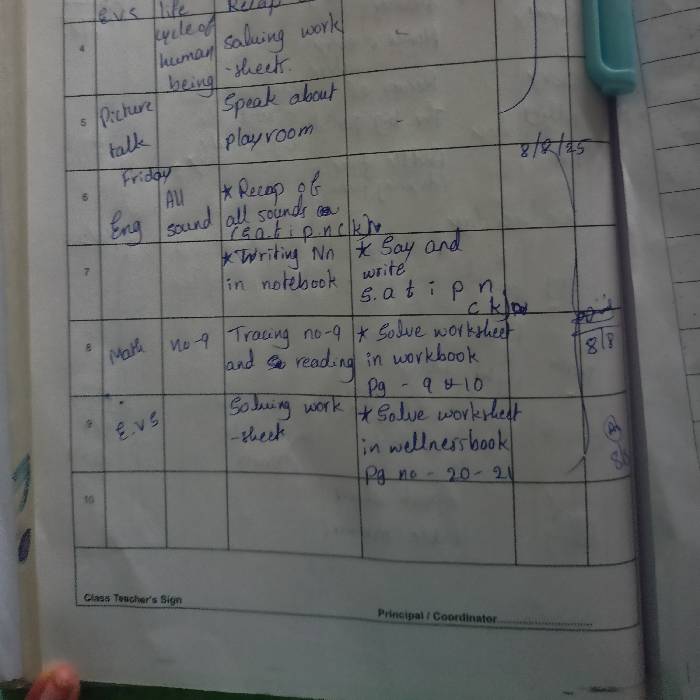 E.V.S life Recap
cycle of
4 human Solving work
being -sheet.
5 Picture Speak about
talk playroom
8/8/25
Friday
6 All * Recap of
Eng sound all sounds
(s a t i p n c k)
7 * Writing Nn * Say and
in notebook write
s. a t i p n
c k)
8 Math no-9 Tracing no-9 * Solve worksheet
and reading in workbook
Pg - 9 & 10
8/8
9 E.V.S Solving work * Solve worksheet
-sheet in wellnessbook
Pg no - 20 - 21
10
Class Teacher's Sign
Principal / Coordinator